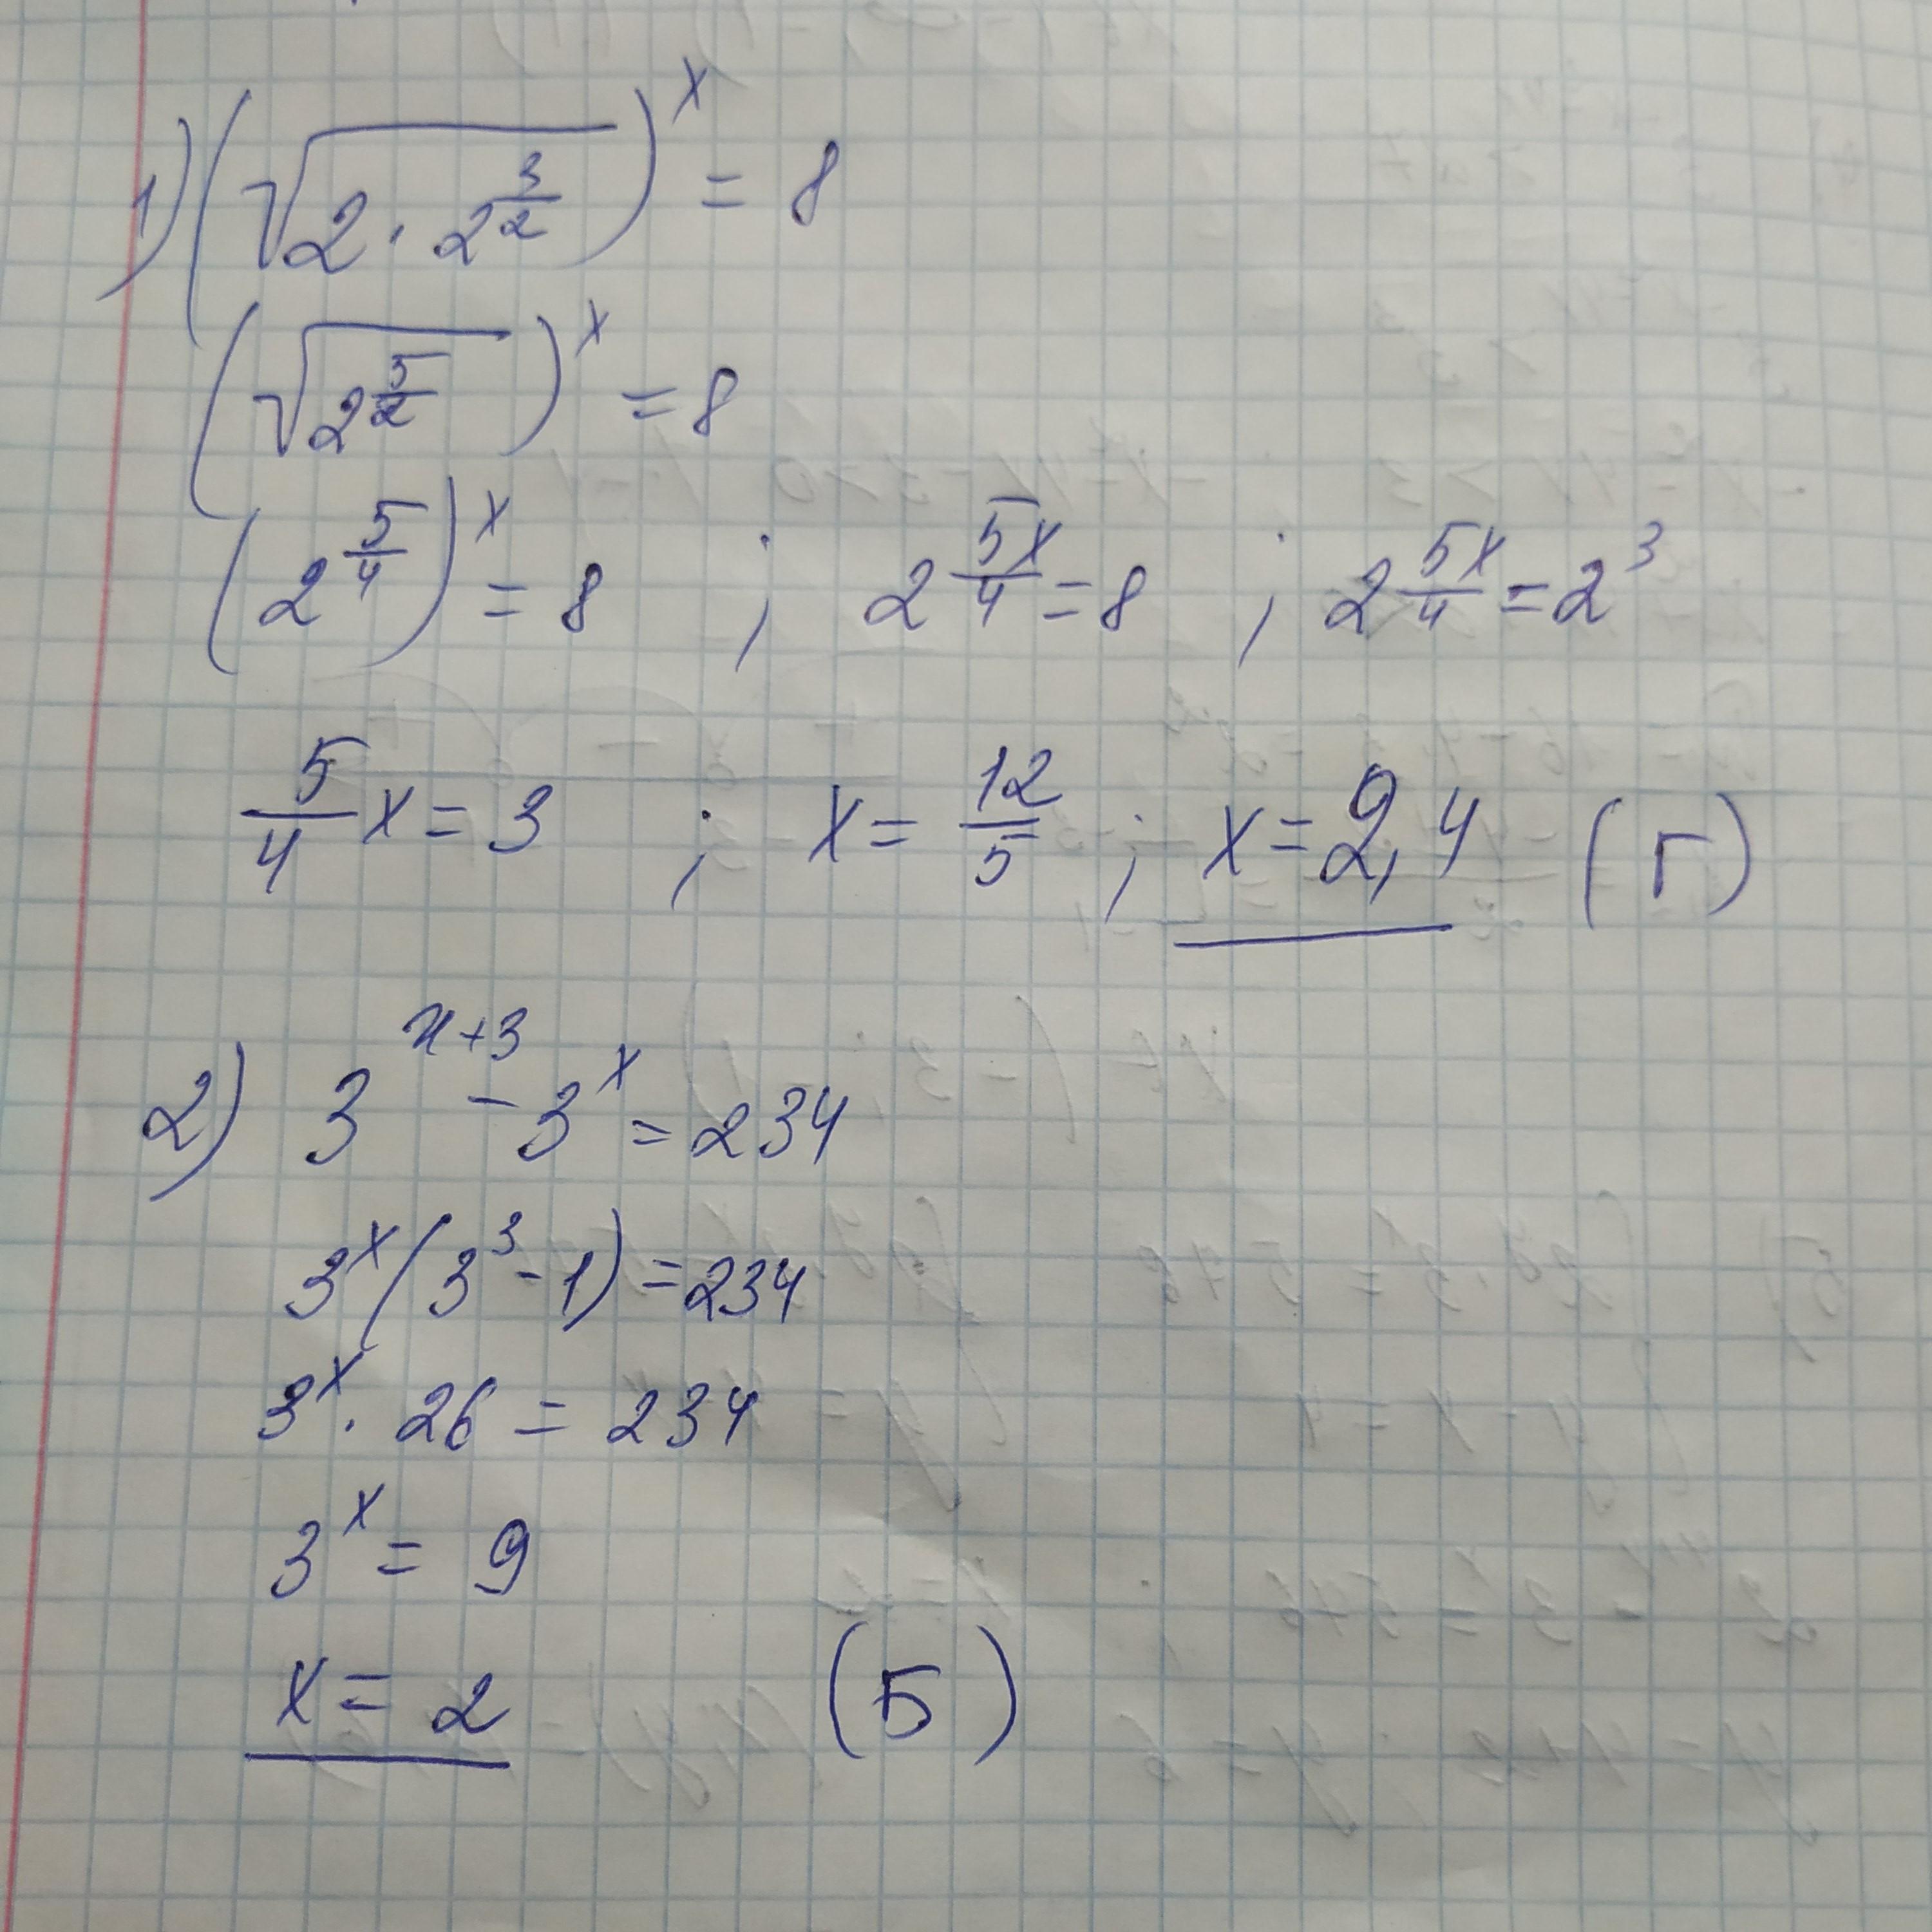 1) (√(2 · 2^(3/2)))^x = 8
(√(2^(5/2)))^x = 8
(2^(5/4))^x = 8 ; 2^(5x/4) = 8 ; 2^(5x/4) = 2^3
5/4 x = 3 ; x = 12/5 ; x = 2,4 (Г)
2) 3^(x+3) - 3^x = 234
3^x (3^3 - 1) = 234
3^x · 26 = 234
3^x = 9
x = 2 (Б)